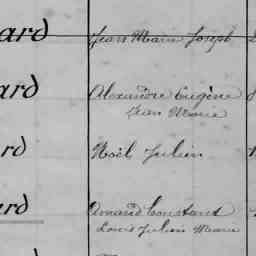 ard Jean Marie Joseph
ard Alexandre Eugène
Jean Marie
rd Noël Julien
ard Amand Constant
Louis Julien Marie